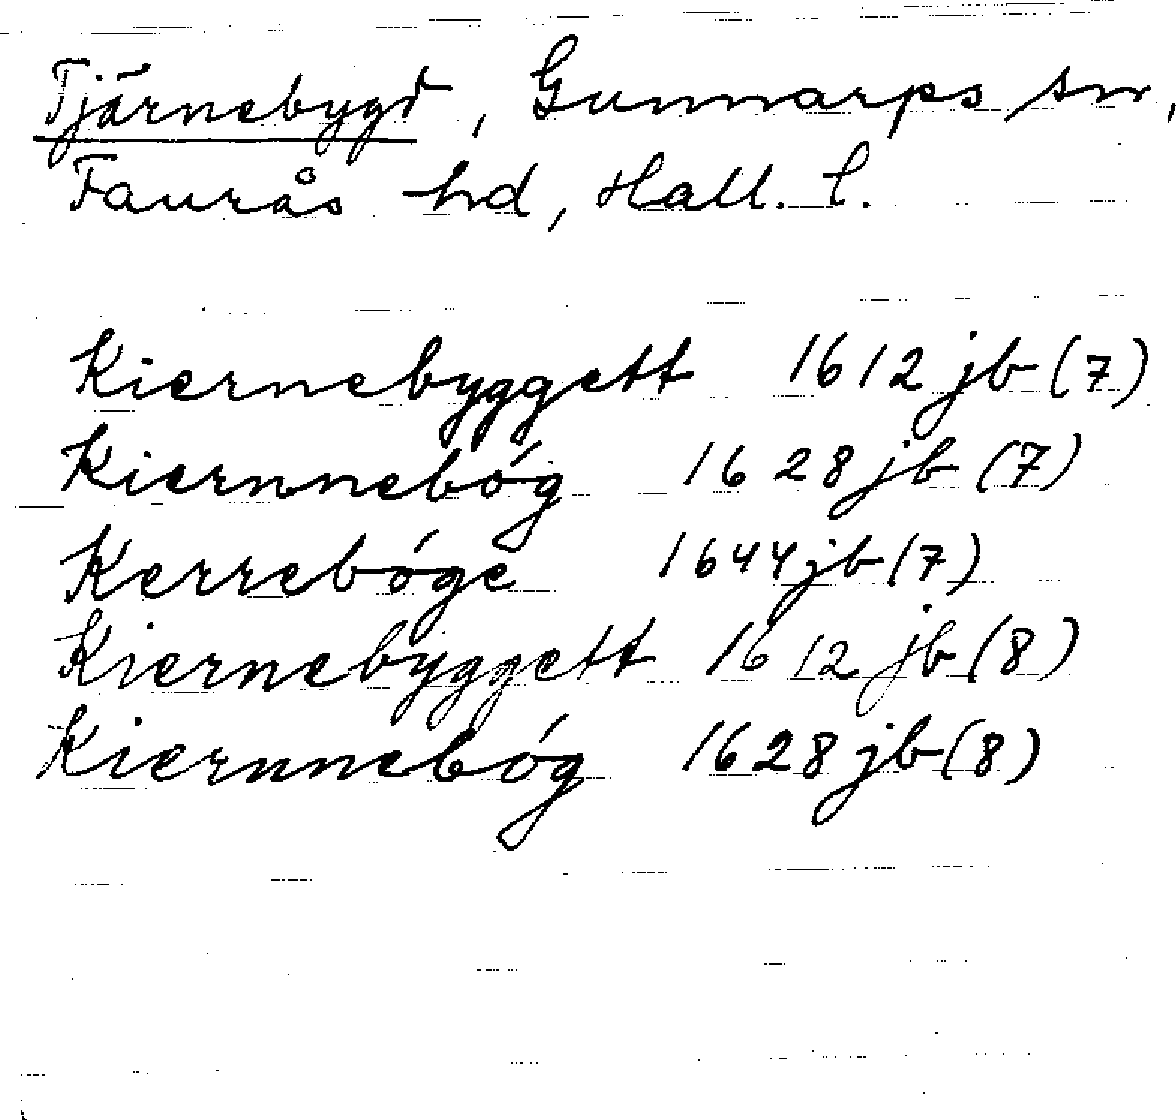 Tjärnebygd, Gunnarps sn,
Faurås hd, Hall. l.
Kiernebyggett 1612 jb (7)
Kiernnebóg 1628 jb (7)
Kerrebóge 1644 jb (7)
Kiernebyggett 1612 jb (8)
Kiernnebóg 1628 jb (8)